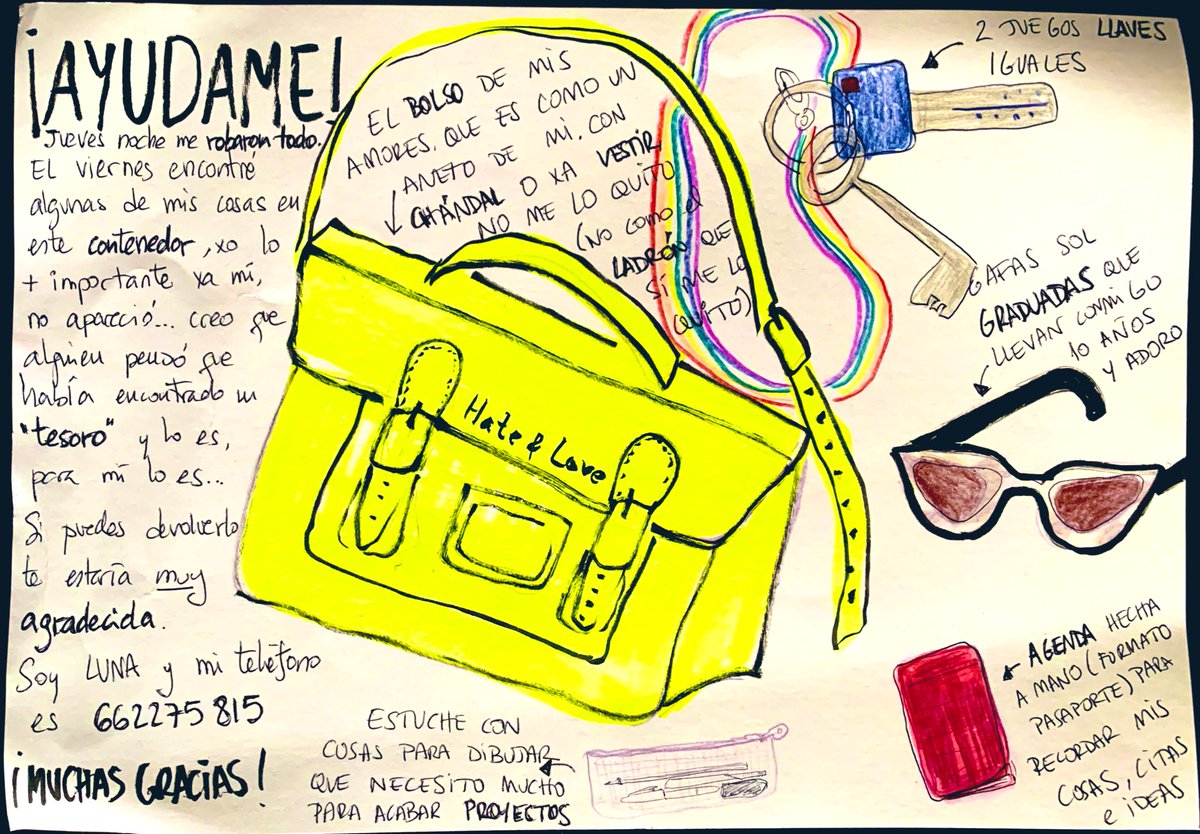 ¡AYUDAME!
Jueves noche me robaron todo.
El viernes encontré
algunas de mis cosas en
este contenedor, xo lo
+ importante xa mí,
no apareció... creo que
alguien pensó qe
había encontrado un
"tesoro" y lo es,
para mi lo es...
Si puedes devolverlo
te estaría muy
agradecida.
Soy LUNA y mi teléfono
es 662275815
¡MUCHAS GRACIAS!
EL BOLSO DE MIS
AMORES, QUE ES COMO UN
ANEXO DE MI. CON
CHÁNDAL O XA VESTIR
NO ME LO QUITO
(NO COMO el
LADRÓN QUE
SÍ ME LO
QUITÓ)
Hate & Love
2 JUEGOS LLAVES
IGUALES
GAFAS SOL
GRADUADAS QUE
LLEVAN CONMIGO
10 AÑOS
Y ADORO
AGENDA HECHA
A MANO (FORMATO
PASAPORTE) PARA
RECORDAR MIS
COSAS, CITAS
e iDEAS
ESTUCHE CON
COSAS PARA DIBUJAR
QUE NECESITO MUCHO
PARA ACABAR PROYECTOS